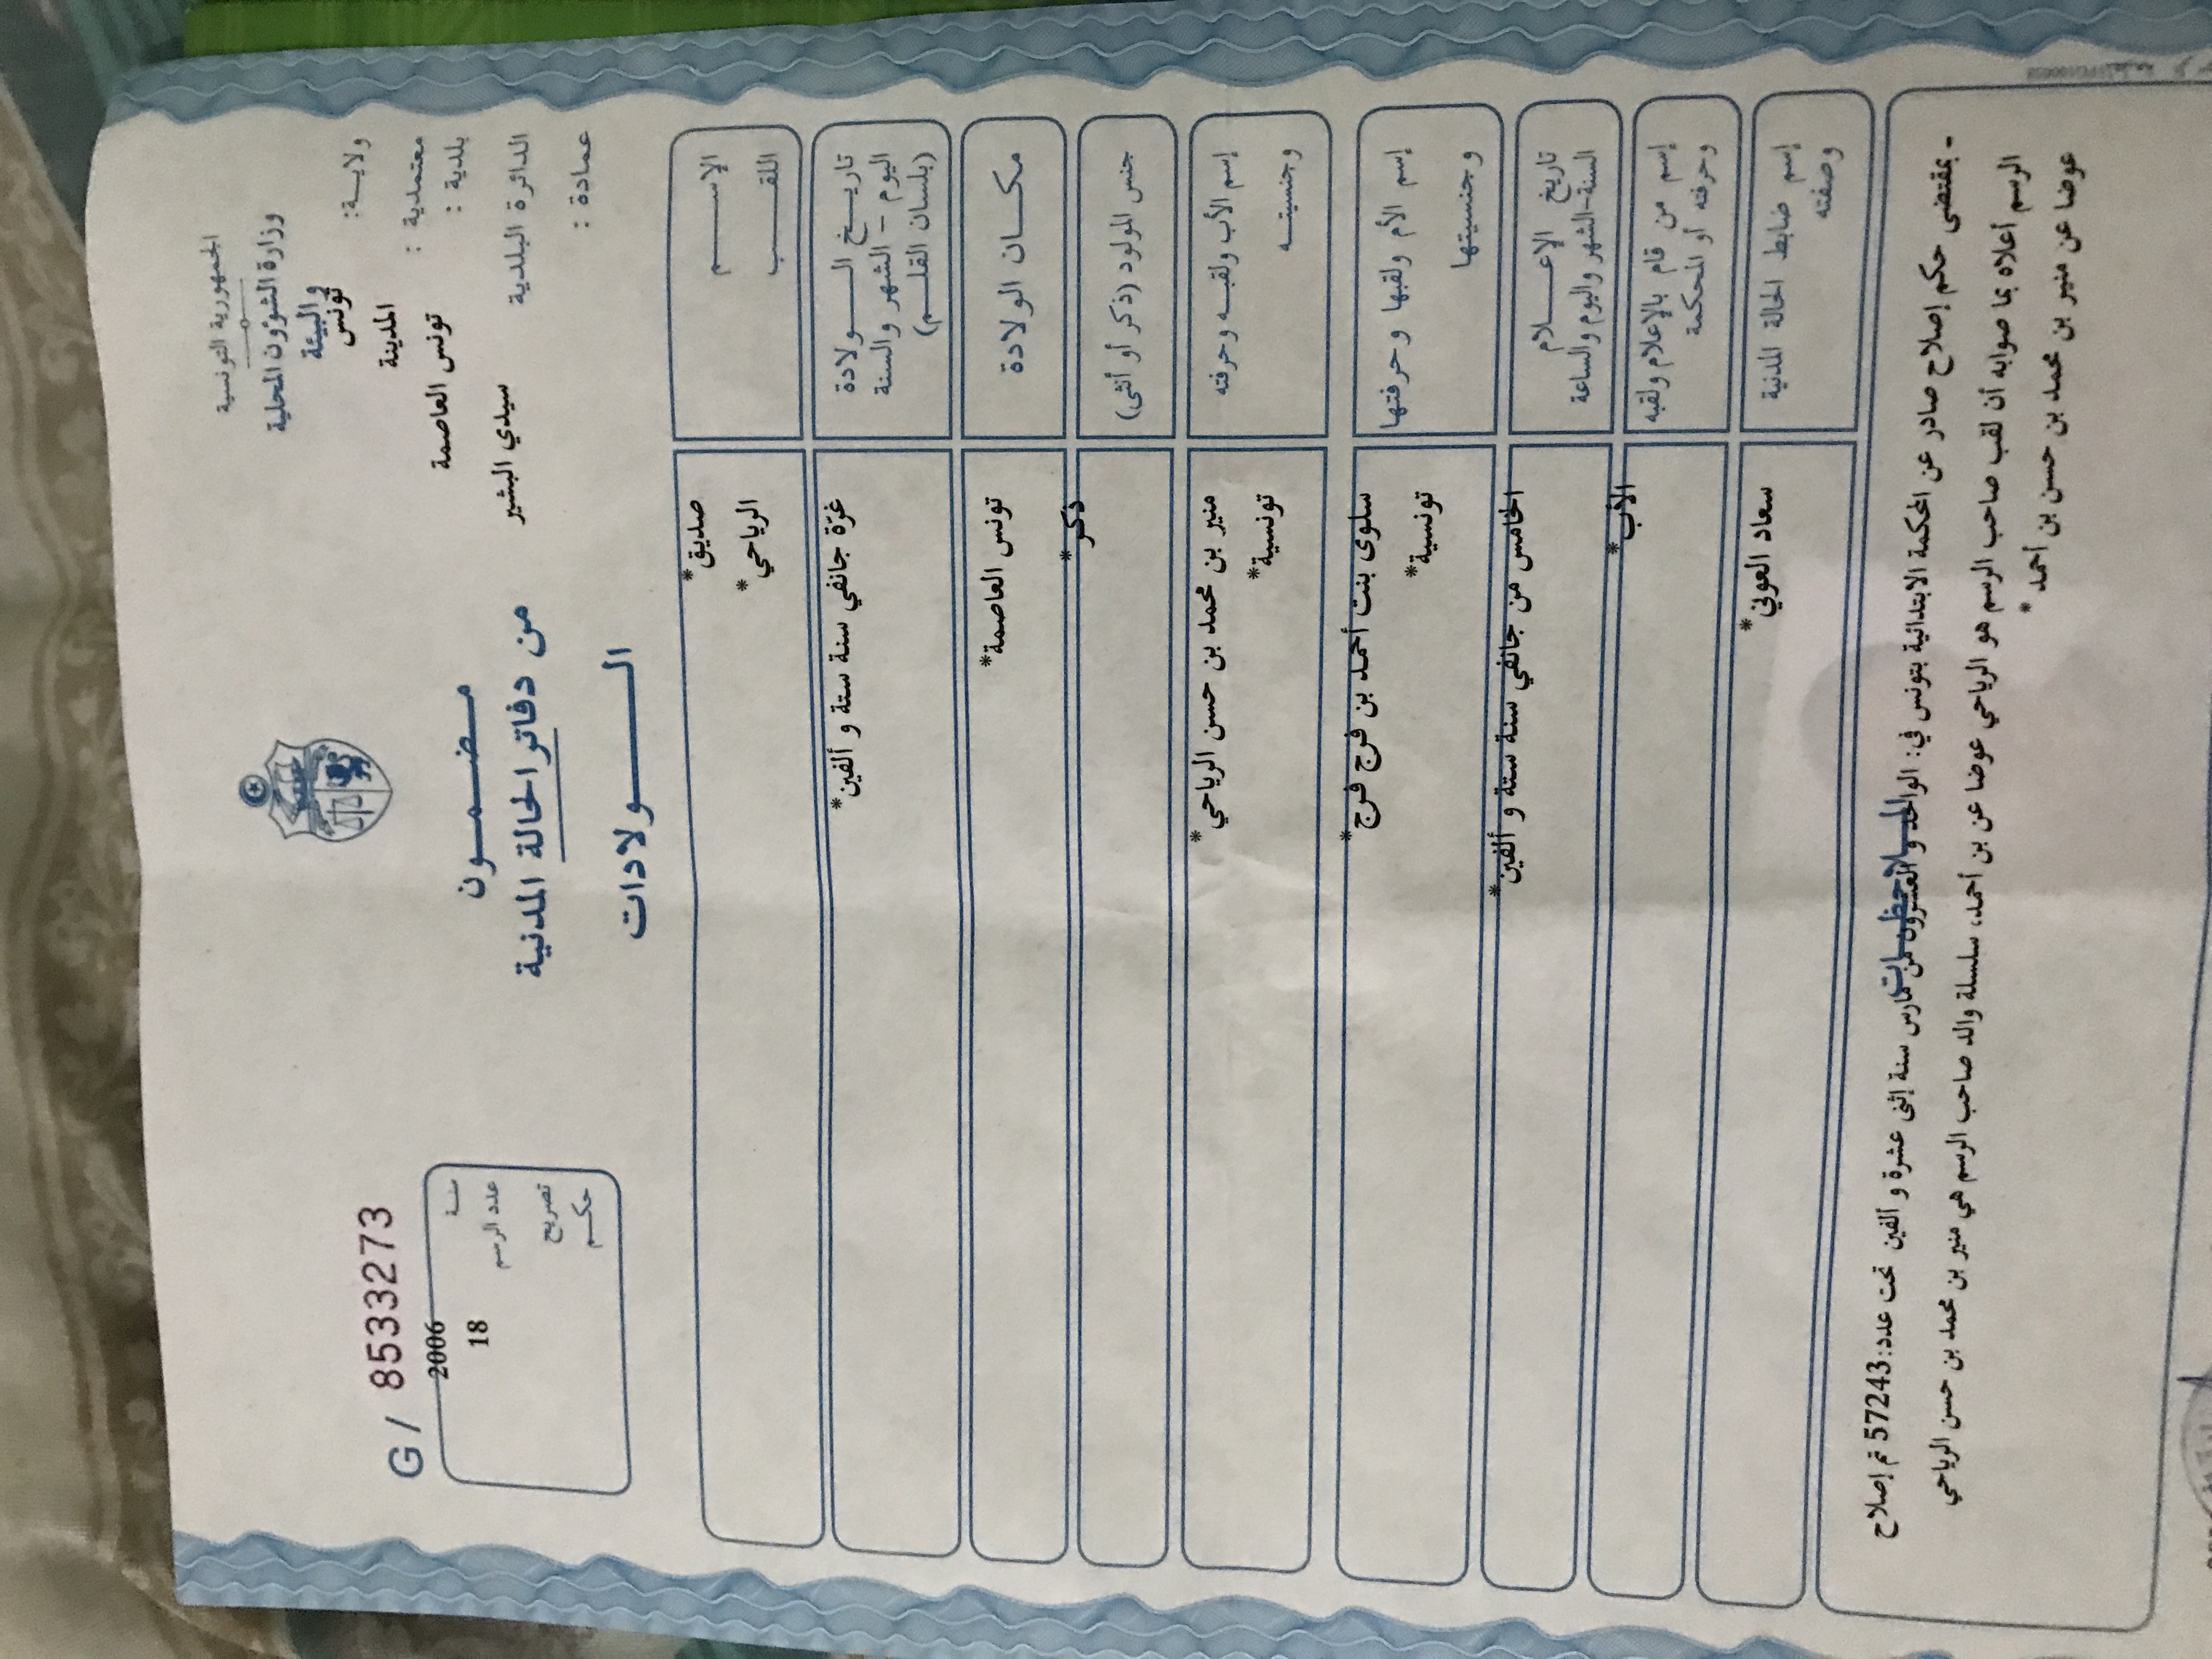 الجمهورية التونسية
وزارة الشؤون المحلية
والبيئة
ولايــة: تونس
معتمدية : المدينة
بلدية : تونس العاصمة
الدائرة البلدية سيدي البشير
عمادة :
مـضـمـون
من دفاتر الحالة المدنية
الـــولادات
G/ 8533273
سنـة 2006
عدد الرسم 18
تصريح
حكـم
الإســـم صديق*
اللقـــب الرياحي*
تاريـخ الــولادة غرّة جانفي سنة ستة و ألفين*
اليوم – الشهر والسنة
(بلسان القلـم)
مكــان الولادة تونس العاصمة*
جنس المولود (ذكر أو أنثى) ذكر*
إسم الأب ولقبـه وحرفته منير بن محمد بن حسن الرياحي*
وجنسيتـه تونسية*
إسم الأم ولقبها وحرفتها سلوى بنت أحمد بن فرج فرج*
وجنسيتها تونسية*
تاريخ الإعــلام الخامس من جانفي سنة ستة و ألفين*
السنة-الشهر واليوم والساعة
إسم من قام بالإعلام ولقبه الأب*
وحرفته أو المحكمة
إسم ضابط الحالة المدنية سعاد العوني*
وصفته
الملاحظـات
- بمقتضى حكم إصلاح صادر عن المحكمة الابتدائية بتونس في: الواحد و العشرون من مارس سنة إثنى عشرة و ألفين تحت عدد: 57243 تم إصلاح
الرسم أعلاه بما صوابه أن لقب صاحب الرسم هو الرياحي عوضا عن بن أحمد، سلسلة والد صاحب الرسم هي منير بن محمد بن حسن الرياحي
عوضا عن منير بن محمد بن حسن بن أحمد *